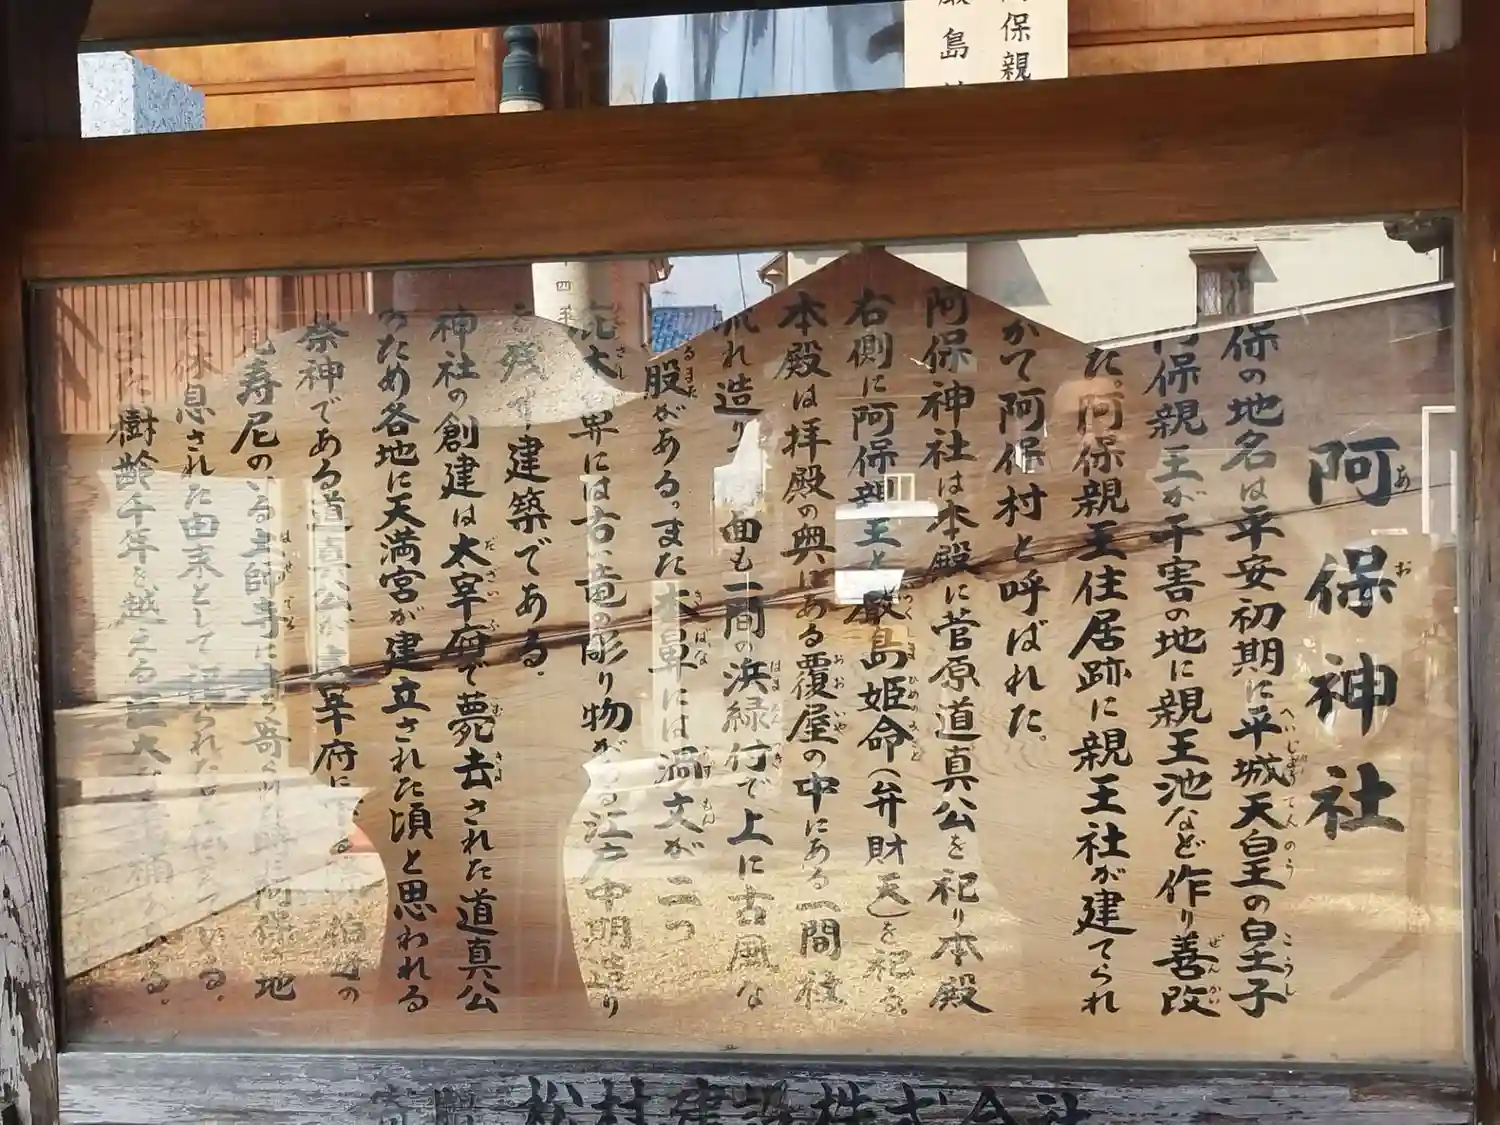 保親
嚴島
阿保神社
保の地名は平安初期に平城天皇の皇子
阿保親王が干害の地に親王池など作り善改
た。阿保親王住居跡に親王社が建てられ
かて阿保村と呼ばれた。
阿保神社は本殿に菅原道真公を祀り本殿
右側に阿保親王と厳島姫命(弁財天)を祀る。
本殿は拝殿の奥にある覆屋の中にある一間社
流れ造り 面も一間の浜縁行で上に古風な
股がある。また木鼻には渦文が二つ
木鼻には古い竜の彫り物がある江戸中期造り
残す建築である.
神社の創建は太宰府で薨去された道真公
のため各地に天満宮が建立された頃と思われる
祭神である道真公が太宰府に下る 伯母の
寿尼のいる土師寺に立ち寄られた時に阿保の地
に休息された由来として 伝えている.
また樹齢千年を越える巨大な
寄贈 松村建設株式会社